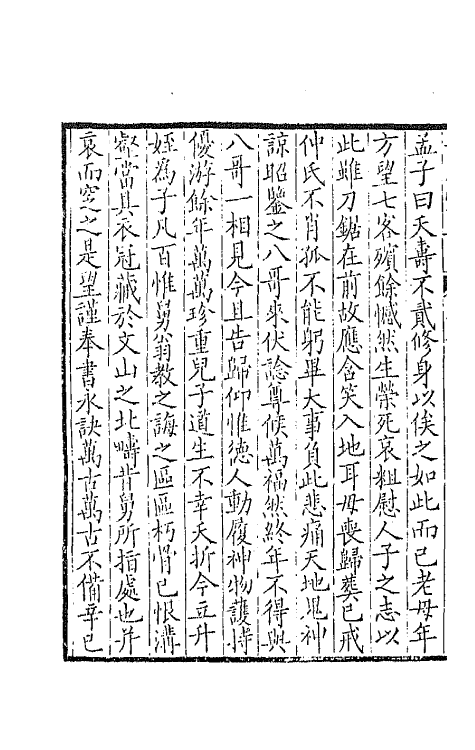 孟子曰夭壽不貳修身以俟之如此而已老母年
方望七客殯餘憾然生榮死哀粗慰人子之志以
此雖刀鋸在前故應含笑入地耳母喪歸葬已戒
仲氏不肖孤不能躬畢大事負此悲痛天地鬼神
諒昭鑒之八哥來伏諗尊候萬福然終年不得與
八哥一相見今且告歸仰惟德人動履神物護持
優游餘年萬萬珍重兒子道生不幸夭折今立升
姪為子凡百惟舅翁教之誨之區區朽骨已恨溝
壑當具衣冠藏於文山之北疇昔舅所指處也并
哀而窆之是望謹奉書永訣萬古萬古不備辛巳